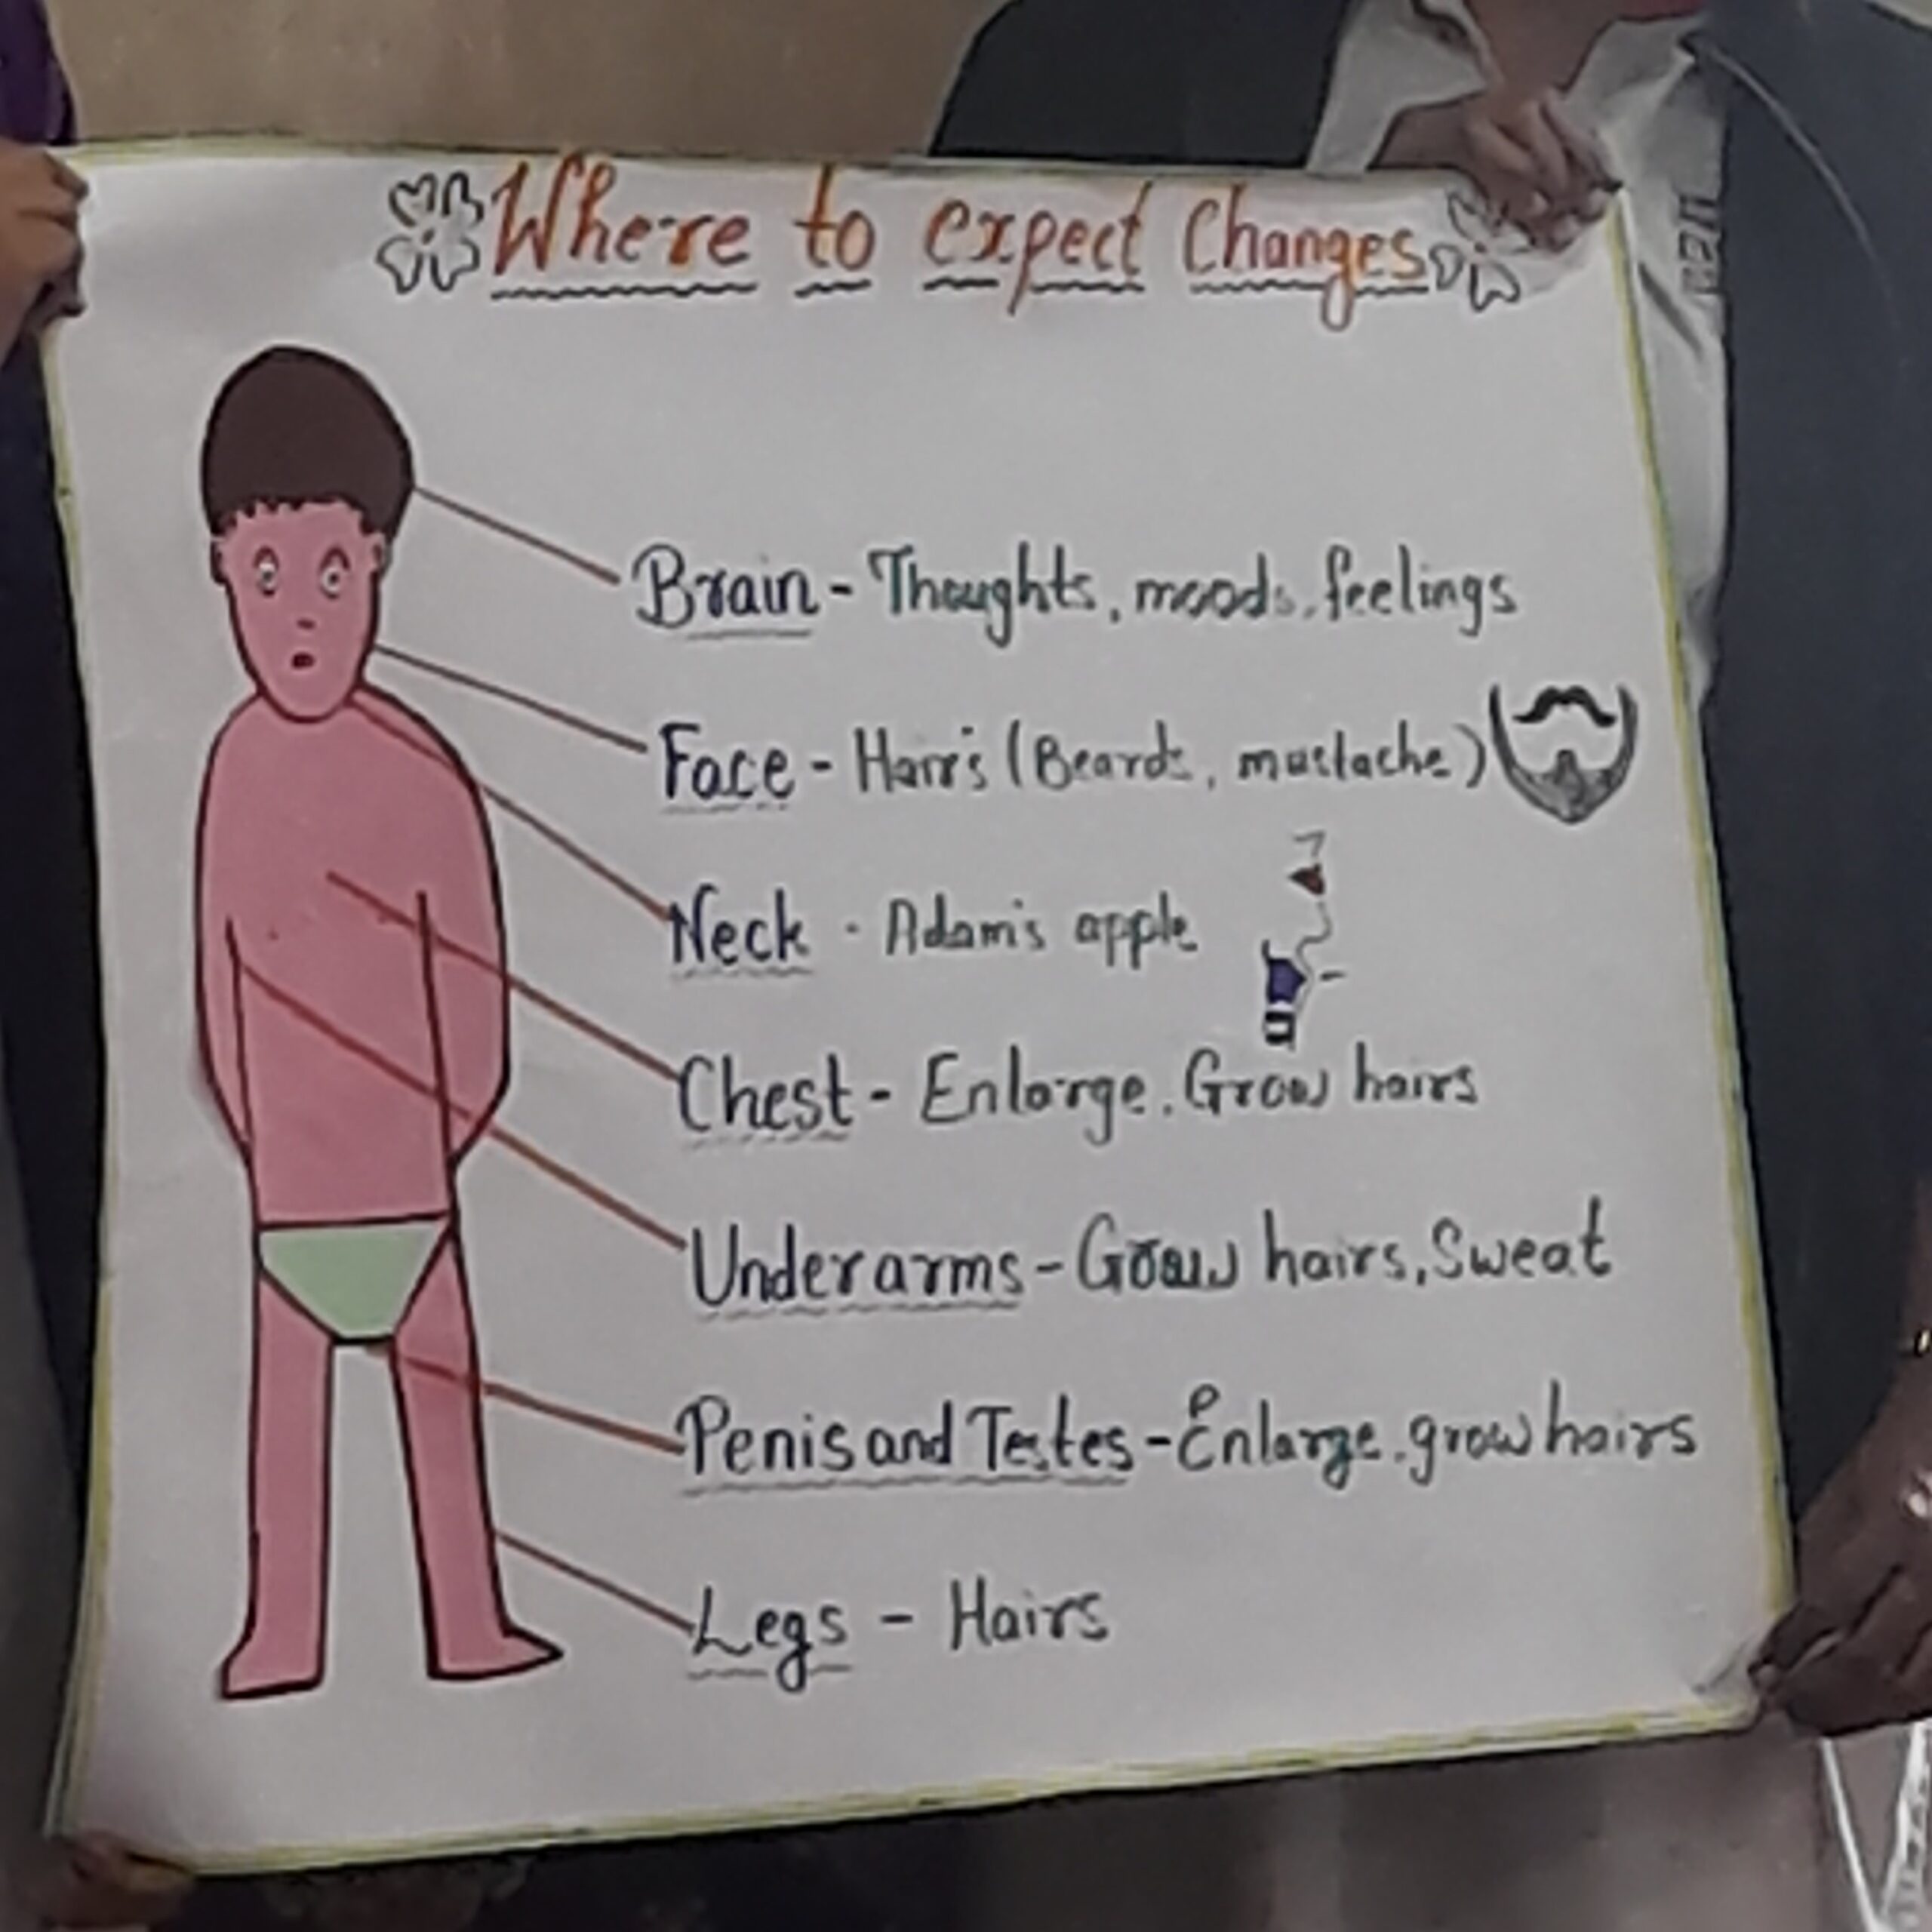 Where to expect Changes
Brain - Thoughts, moods, feelings
Face - Hairs (Beards, mustache)
Neck - Adam's apple
Chest - Enlarge. Grow hairs
Underarms - Grow hairs, Sweat
Penis and Testes - Enlarge. grow hairs
Legs - Hairs